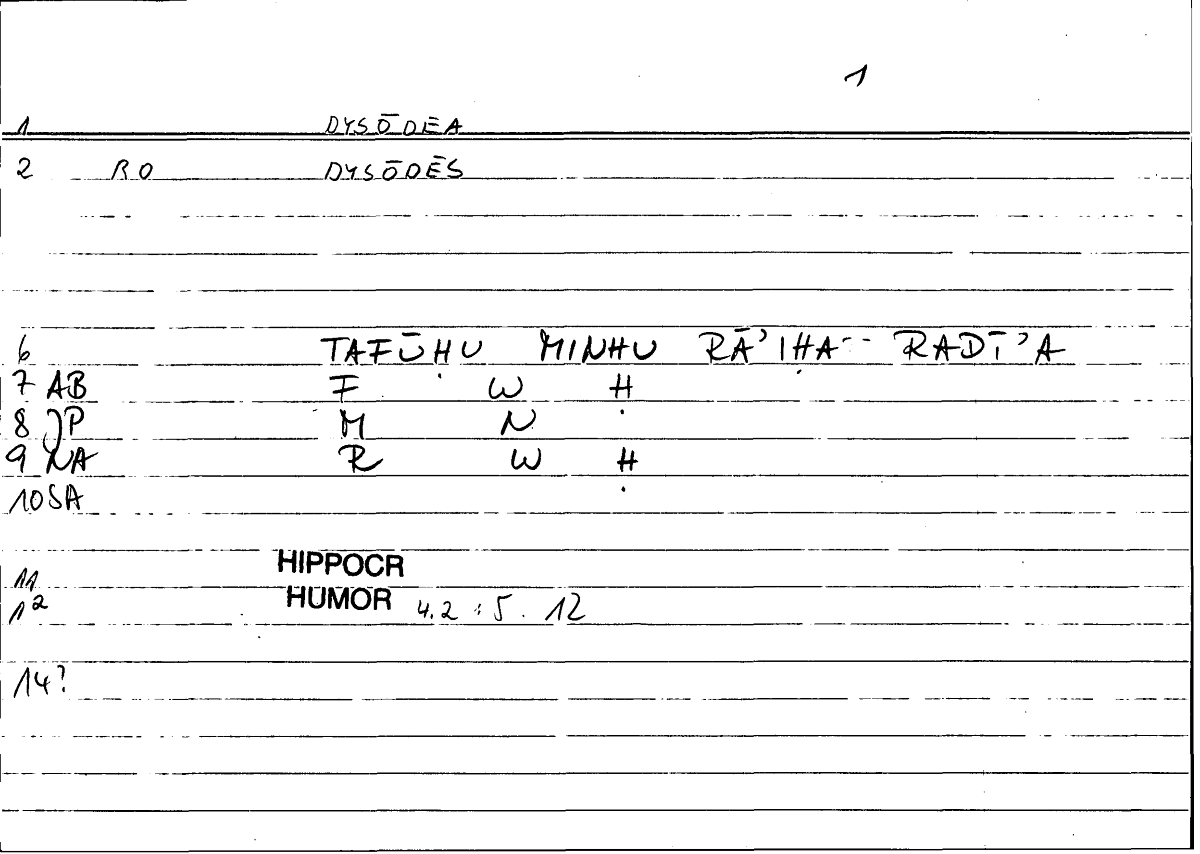 1
1 DYSŌDEA
2 RO DYSŌDĒS
6 TAFŪḤU MINHU RĀʾIḤA-- RADĪʾA
7 AB F W Ḥ
8 JP M N
9 NA R W Ḥ
10 SA
11 HIPPOCR
12 HUMOR 4.2 : 5 . 12
14?